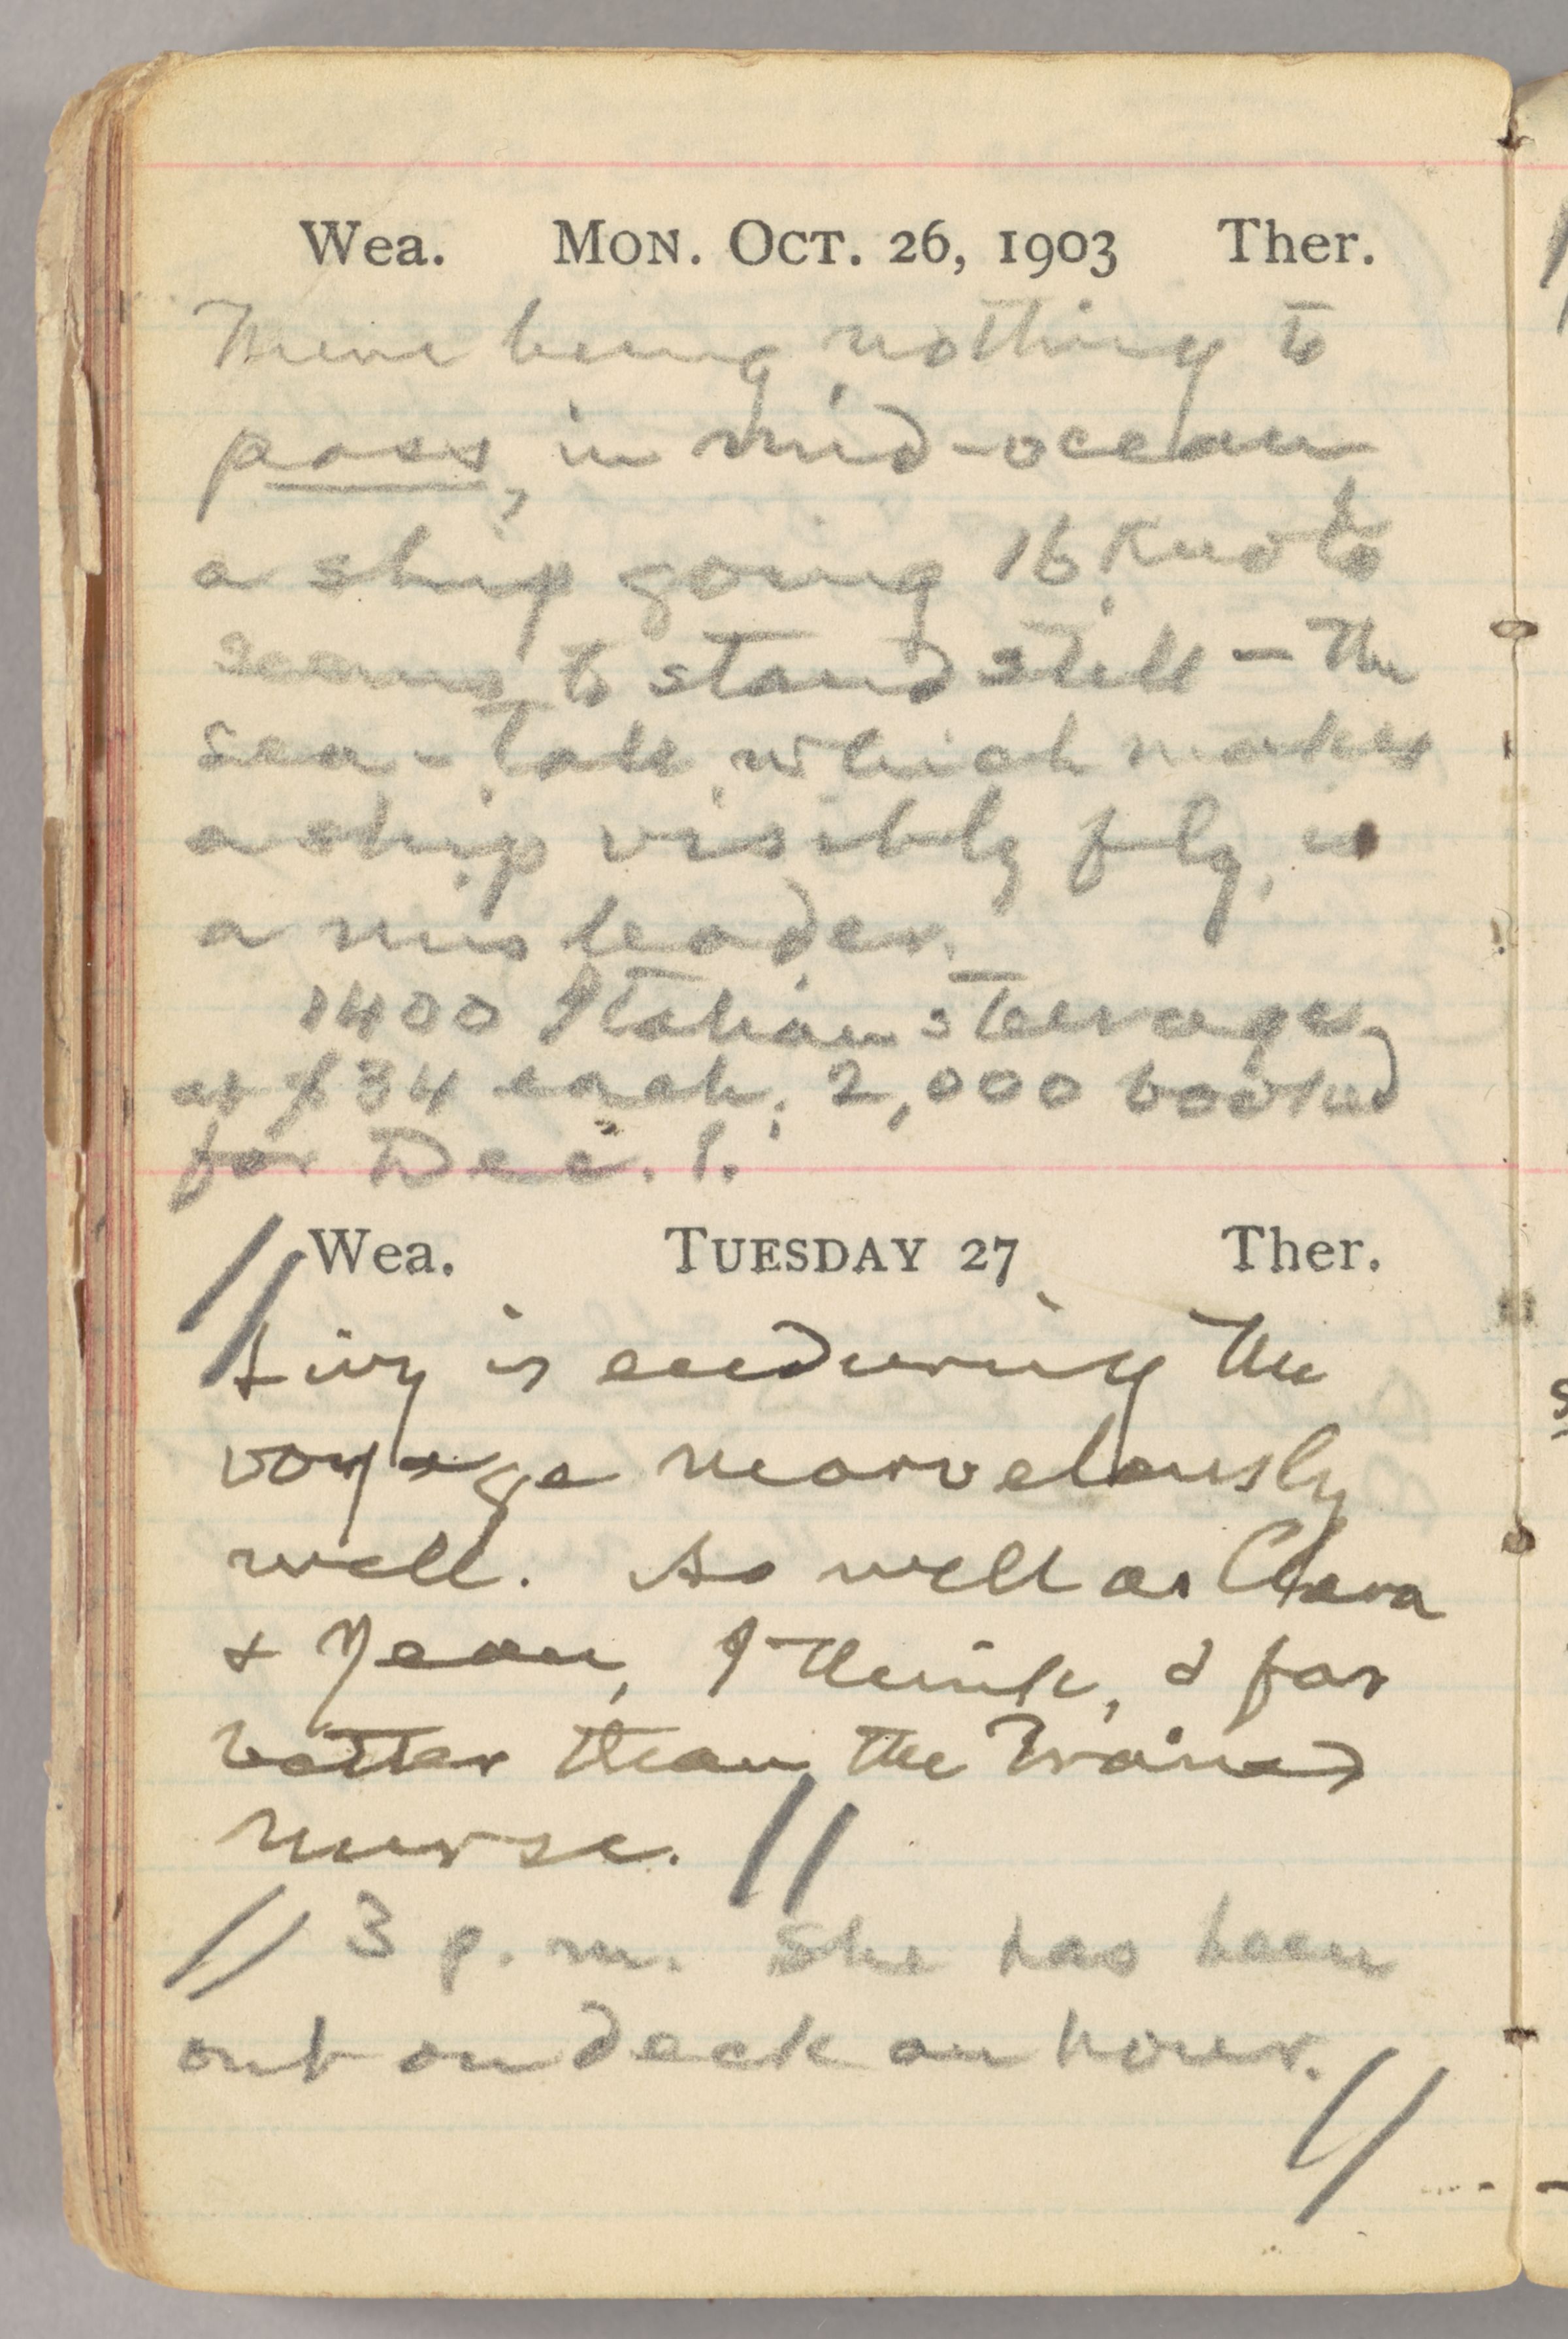 Wea. MON. OCT. 26, 1903 Ther.
There being nothing to
pass, in mid-ocean
a ship going 16 knots
seems to stand still — the
sea-talk which makes
a ship visibly fly, is
a misleader.
1400 Italian steerages
at $34 each; 2,000 booked
for Dec. 1.
Wea. TUESDAY 27 Ther.
// Livy is enduring the
voyage marvelously
well. As well as Clara
& Jean, I think, & far
better than the trained
nurse. //
// 3 p.m. She has been
out on deck an hour. //